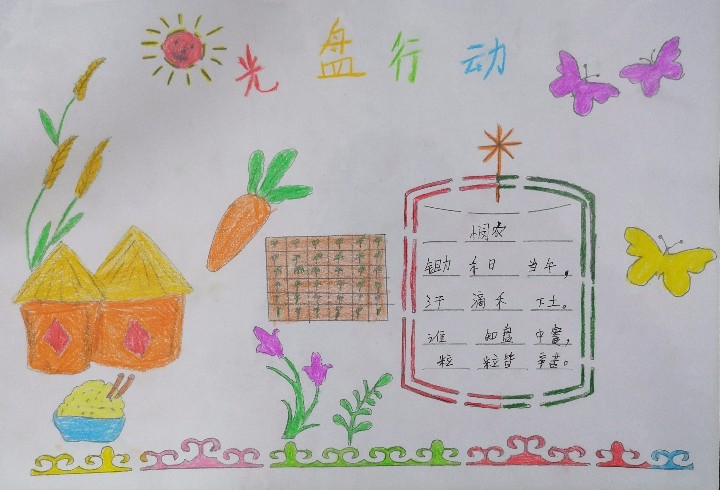 光盘行动
悯农
锄禾日当午，
汗滴禾下土。
谁知盘中餐，
粒粒皆辛苦。